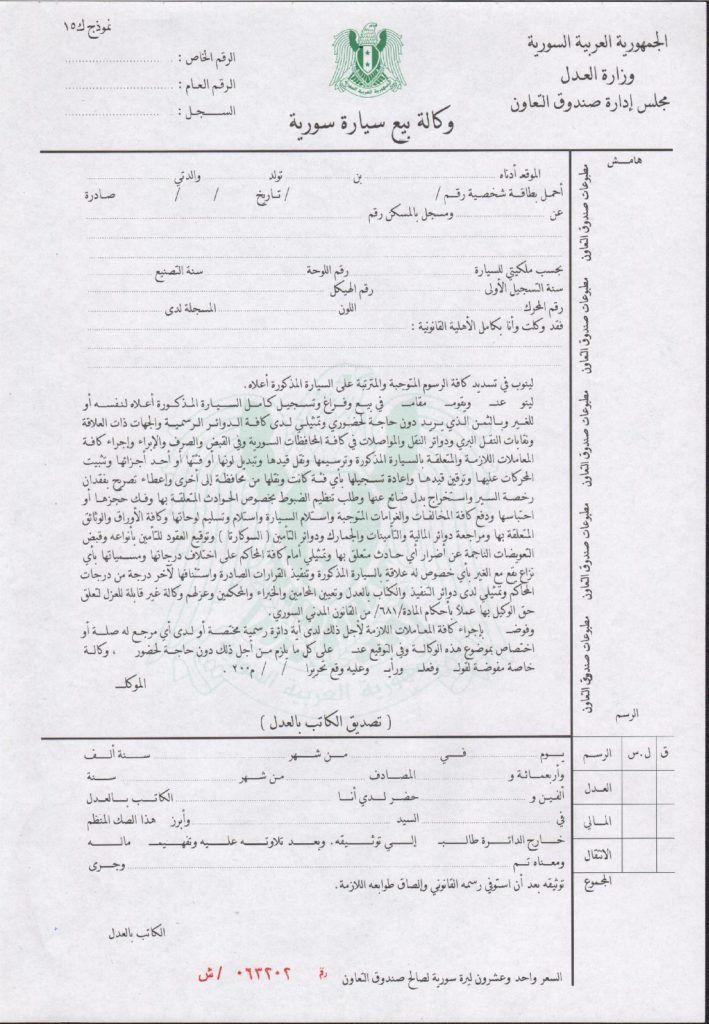 نموذج ك١٥
الجمهورية العربية السورية
وزارة العدل
مجلس إدارة صندوق التعاون
الرقم الخاص :
الرقم العام :
السجل :
وكالة بيع سيارة سورية
هامش
مطبوعات صندوق التعاون مطبوعات صندوق التعاون مطبوعات صندوق التعاون مطبوعات صندوق التعاون مطبوعات صندوق التعاون
الموقع أدناه بن تولد والدتي
أحمل بطاقة شخصية رقم / / تاريخ / / صادرة
عن ومسجل بالمسكن رقم
بحسب ملكيتي للسيارة رقم اللوحة سنة التصنيع
سنة التسجيل الأولى رقم الهيكل
رقم المحرك اللون المسجلة لدى
فقد وكلت وأنا بكامل الأهلية القانونية :
لينوب في تسديد كافة الرسوم المتوجبة والمترتبة على السيارة المذكورة أعلاه.
لينو عنـ ويقومـ مقامـ في بيع وفراغ وتسجيل كامل السيارة المذكورة أعلاه لنفسه أو
للغير وبالثمن الذي يريد دون حاجة لحضوري وتمثيلي لدى كافة الدوائر الرسمية والجهات ذات العلاقة
ونقابات النقل البري ودوائر النقل والمواصلات في كافة المحافظات السورية وفي القبض والصرف والإبراء وإجراء كافة
المعاملات اللازمة والمتعلقة بالسيارة المذكورة وترسيمها ونقل قيدها وتبديل لونها أو فئتها أو أحد أجزائها وتثبيت
المحركات عليها وترقين قيدها وإعادة تسجيلها بأي فئة كانت ونقلها من محافظة إلى أخرى وإعطاء تصريح بفقدان
رخصة السير واستخراج بدل ضائع عنها وطلب تنظيم الضبوط بخصوص الحوادث المتعلقة بها وفك حجزها أو
احتباسها ودفع كافة المخالفات والغرامات المتوجبة واستلام السيارة واستلام وتسليم لوحاتها وكافة الأوراق والوثائق
المتعلقة بها ومراجعة دوائر المالية والتأمينات والجمارك ودوائر التأمين ( السوكارتا ) وتوقيع العقود للتأمين بأنواعه وقبض
التعويضات الناجمة عن أضرار أي حادث متعلق بها وتمثيلي أمام كافة المحاكم على اختلاف درجاتها ومسمياتها بأي
نزاع يقع مع الغير بأي خصوص له علاقة بالسيارة المذكورة وتنفيذ القرارات الصادرة واستئنافها لآخر درجة من درجات
المحاكم وتمثيلي لدى دوائر التنفيذ والكتاب بالعدل وتعيين المحامين والخبراء والمحكمين وعزلهم وكالة غير قابلة للعزل لتعلق
حق الوكيل بها عملاً بأحكام المادة/٦٨١/ من القانون المدني السوري.
وفوضـ بإجراء كافة المعاملات اللازمة لأجل ذلك لدى أية دائرة رسمية مختصة أو لدى أي مرجع له صلة أو
اختصاص بموضوع هذه الوكالة وفي التوقيع عنـ على كل ما يلزم من أجل ذلك دون حاجة لحضور ، وكالة
خاصة مفوضة لقولـ وفعلـ ورأيـ وعليه وقع تحريراً / / ٢٠٠م
الموكلـ
الرسم
( تصديق الكاتب بالعدل )
ق ل.س الرسم
العدل
المالي
الانتقال
المجموع
يوم في من شهر سنة ألف
وأربعمائة و المصادف من شهر سنة
ألفين و حضر لدي أنا الكاتب بالعدل
في السيد وأبرز هذا الصك المنظم
خارج الدائرة طالبـ إلي توثيقه. وبعد تلاوته عليه وتفهيمـ ماله
ومعناه تم وجرى
توثيقه بعد أن استوفي رسمه القانوني وإلصاق طوابعه اللازمة.
الكاتب بالعدل
السعر واحد وعشرون ليرة سورية لصالح صندوق التعاون رقم ٠٦٣٢٠٢ /ش